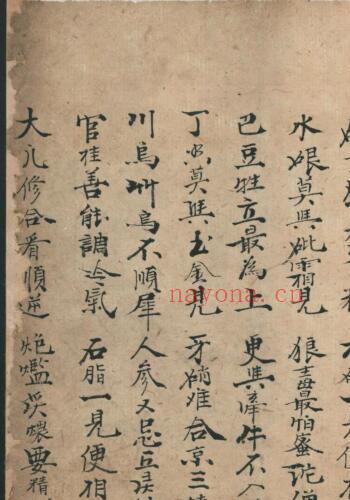 水娘莫與砒霜見 狼毒最怕蜜陀
巴豆牲立最為上 更與牽牛不
丁香莫與玉金見 牙硝難合京三
川烏草烏不順犀 人參又忌五灵
官桂善能調冷氣 石脂一見便相
大凡修合看順逆 炮爁炙煿要精
nayona.cn